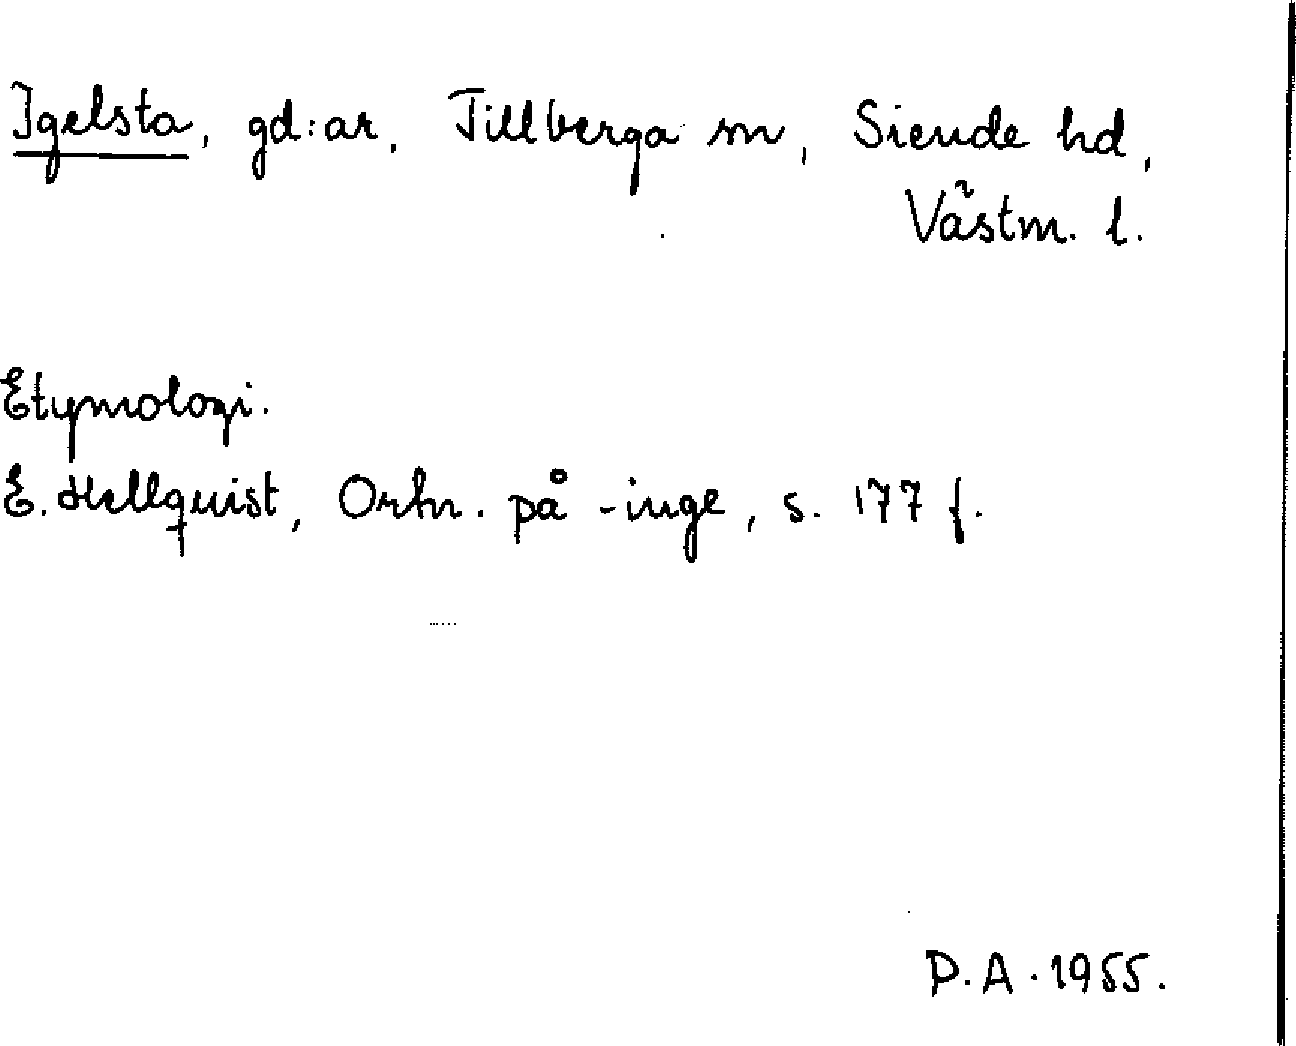 Igelsta, gd:ar, Tillberga sn, Siende hd,
Västm. l.
Etymologi.
E. Hellquist, Ortn. på -inge, s. 177 f.
P.A. 1955.